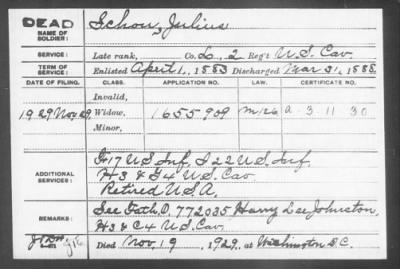 DEAD
NAME OF SOLDIER: Schou, Julius
SERVICE: Late rank, Co. L, 2 Reg't U.S. Cav.
TERM OF SERVICE: Enlisted April 1, 1883 Discharged Mar 31, 1888.
DATE OF FILING. CLASS. APPLICATION NO. CERTIFICATE NO.
Invalid,
1929 Nov 29 Widow, 1655909 a-3-11-30
Minor,
ADDITIONAL SERVICES: F 17 U.S. Inf, I 22 U.S. Inf,
H 3 & G 4 U.S. Cav.
Retired U.S.A.
REMARKS: See Fath. O. 772035 Harry Lee Johnston,
H 3 & C 4 U.S. Cav.
Died Nov 19, 1929, at Washington D.C.